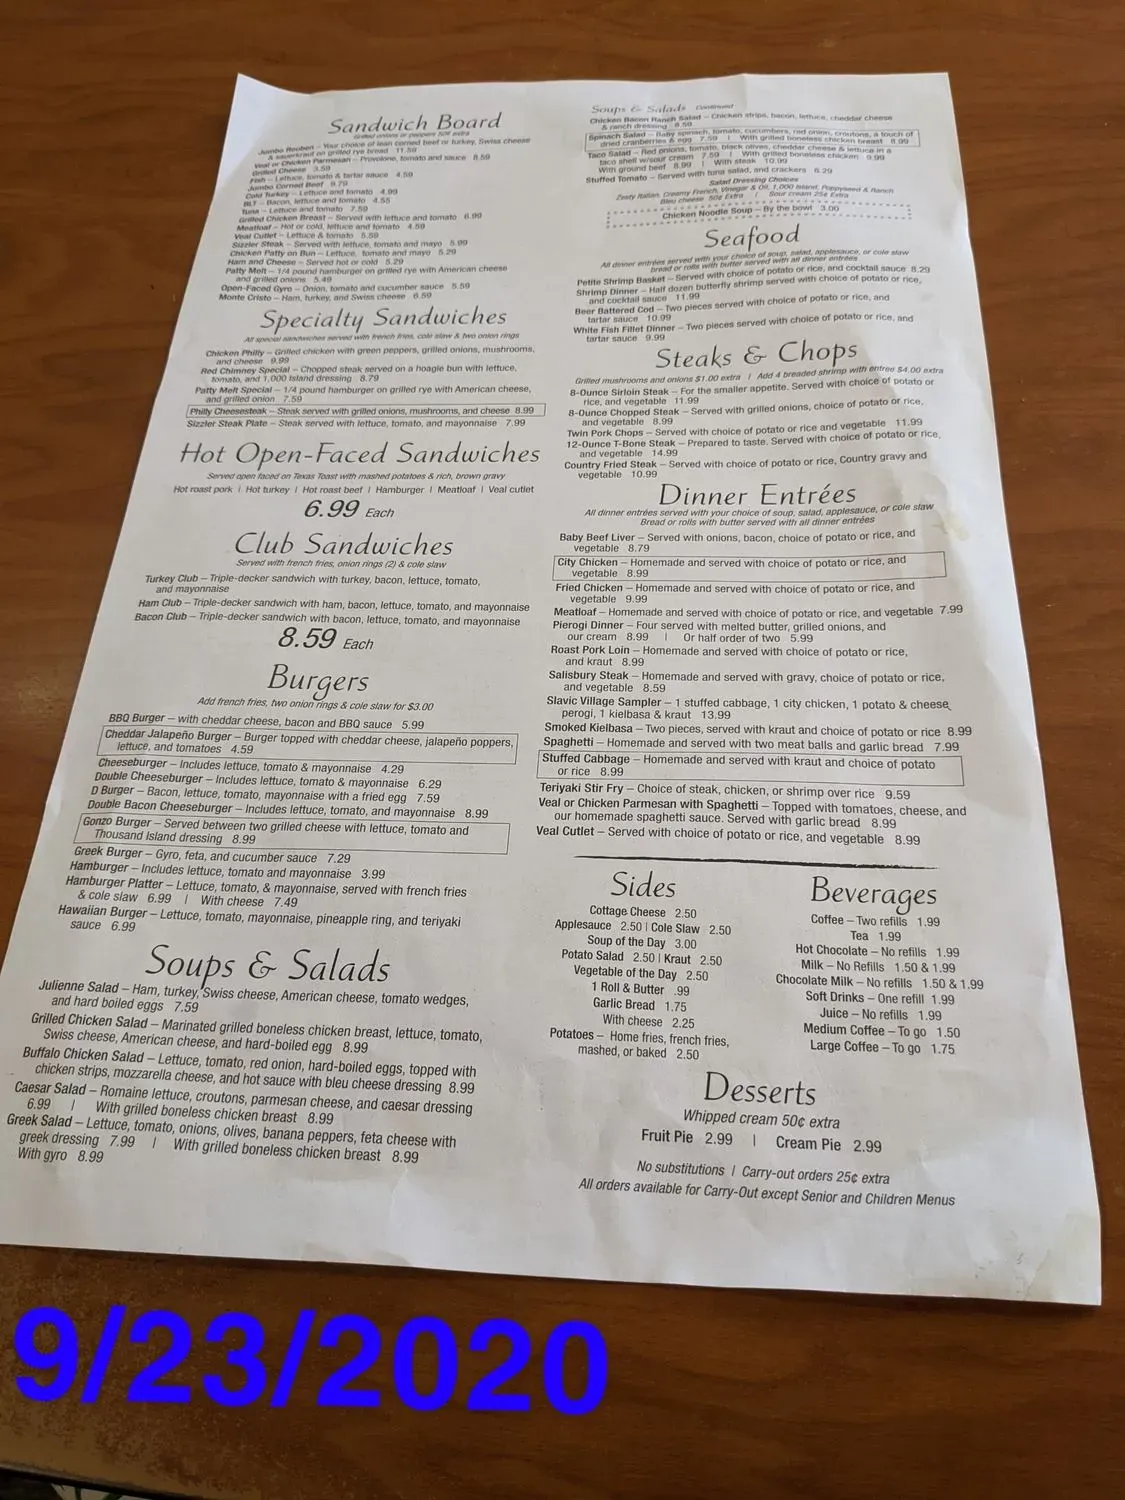 Sandwich Board
Grilled onions or peppers 50¢ extra
Jumbo Reuben – Your choice of lean corned beef or turkey, Swiss cheese
& sauerkraut on grilled rye bread 11.59
Veal or Chicken Parmesan – Provolone, tomato and sauce 8.59
Grilled Cheese 3.59
Fish – Lettuce, tomato & tartar sauce 4.59
Jumbo Corned Beef 9.79
Cold Turkey – Lettuce and tomato 4.99
BLT – Bacon, lettuce and tomato 4.55
Tuna – Lettuce and tomato 7.59
Grilled Chicken Breast – Served with lettuce and tomato 6.99
Meatloaf – Hot or cold, lettuce and tomato 4.59
Veal Cutlet – Lettuce & tomato 5.59
Sizzler Steak – Served with lettuce, tomato and mayo 5.99
Chicken Patty on Bun – Lettuce, tomato and mayo 5.29
Ham and Cheese – Served hot or cold 5.29
Patty Melt – 1/4 pound hamburger on grilled rye with American cheese
and grilled onions 5.49
Open-Faced Gyro – Onion, tomato and cucumber sauce 5.59
Monte Cristo – Ham, turkey, and Swiss cheese 6.59
Specialty Sandwiches
All special sandwiches served with french fries, cole slaw & two onion rings
Chicken Philly – Grilled chicken with green peppers, grilled onions, mushrooms,
and cheese 9.99
Red Chimney Special – Chopped steak served on a hoagie bun with lettuce,
tomato, and 1,000 Island dressing 8.79
Patty Melt Special – 1/4 pound hamburger on grilled rye with American cheese,
and grilled onion 7.59
Philly Cheesesteak – Steak served with grilled onions, mushrooms, and cheese 8.99
Sizzler Steak Plate – Steak served with lettuce, tomato, and mayonnaise 7.99
Hot Open-Faced Sandwiches
Served open faced on Texas Toast with mashed potatoes & rich, brown gravy
Hot roast pork | Hot turkey | Hot roast beef | Hamburger | Meatloaf | Veal cutlet
6.99 Each
Club Sandwiches
Served with french fries, onion rings (2) & cole slaw
Turkey Club – Triple-decker sandwich with turkey, bacon, lettuce, tomato,
and mayonnaise
Ham Club – Triple-decker sandwich with ham, bacon, lettuce, tomato, and mayonnaise
Bacon Club – Triple-decker sandwich with bacon, lettuce, tomato, and mayonnaise
8.59 Each
Burgers
Add french fries, two onion rings & cole slaw for $3.00
BBQ Burger – with cheddar cheese, bacon and BBQ sauce 5.99
Cheddar Jalapeño Burger – Burger topped with cheddar cheese, jalapeño poppers,
lettuce, and tomatoes 4.59
Cheeseburger – Includes lettuce, tomato & mayonnaise 4.29
Double Cheeseburger – Includes lettuce, tomato & mayonnaise 6.29
D Burger – Bacon, lettuce, tomato, mayonnaise with a fried egg 7.59
Double Bacon Cheeseburger – Includes lettuce, tomato, and mayonnaise 8.99
Gonzo Burger – Served between two grilled cheese with lettuce, tomato and
Thousand Island dressing 8.99
Greek Burger – Gyro, feta, and cucumber sauce 7.29
Hamburger – Includes lettuce, tomato and mayonnaise 3.99
Hamburger Platter – Lettuce, tomato, & mayonnaise, served with french fries
& cole slaw 6.99 | With cheese 7.49
Hawaiian Burger – Lettuce, tomato, mayonnaise, pineapple ring, and teriyaki
sauce 6.99
Soups & Salads
Julienne Salad – Ham, turkey, Swiss cheese, American cheese, tomato wedges,
and hard boiled eggs 7.59
Grilled Chicken Salad – Marinated grilled boneless chicken breast, lettuce, tomato,
Swiss cheese, American cheese, and hard-boiled egg 8.99
Buffalo Chicken Salad – Lettuce, tomato, red onion, hard-boiled eggs, topped with
chicken strips, mozzarella cheese, and hot sauce with bleu cheese dressing 8.99
Caesar Salad – Romaine lettuce, croutons, parmesan cheese, and caesar dressing
6.99 | With grilled boneless chicken breast 8.99
Greek Salad – Lettuce, tomato, onions, olives, banana peppers, feta cheese with
greek dressing 7.99 | With grilled boneless chicken breast 8.99
With gyro 8.99
Soups & Salads Continued
Chicken Bacon Ranch Salad – Chicken strips, bacon, lettuce, cheddar cheese
& ranch dressing 8.59
Spinach Salad – Baby spinach, tomato, cucumbers, red onion, croutons, a touch of
dried cranberries & egg 7.59 | With grilled boneless chicken breast 8.99
Taco Salad – Red onions, tomato, black olives, cheddar cheese & lettuce in a
taco shell w/sour cream 7.59 | With grilled boneless chicken 9.99
With ground beef 8.99 | With steak 10.99
Stuffed Tomato – Served with tuna salad, and crackers 6.29
Salad Dressing Choices
Zesty Italian, Creamy French, Vinegar & Oil, 1,000 Island, Poppyseed & Ranch
Bleu cheese 50¢ Extra | Sour cream 25¢ Extra
Chicken Noodle Soup – By the bowl 3.00
Seafood
All dinner entrées served with your choice of soup, salad, applesauce, or cole slaw
bread or rolls with butter served with all dinner entrées
Petite Shrimp Basket – Served with choice of potato or rice, and cocktail sauce 8.29
Shrimp Dinner – Half dozen butterfly shrimp served with choice of potato or rice,
and cocktail sauce 11.99
Beer Battered Cod – Two pieces served with choice of potato or rice, and
tartar sauce 10.99
White Fish Fillet Dinner – Two pieces served with choice of potato or rice, and
tartar sauce 9.99
Steaks & Chops
Grilled mushrooms and onions $1.00 extra | Add 4 breaded shrimp with entree $4.00 extra
8-Ounce Sirloin Steak – For the smaller appetite. Served with choice of potato or
rice, and vegetable 11.99
8-Ounce Chopped Steak – Served with grilled onions, choice of potato or rice,
and vegetable 8.99
Twin Pork Chops – Served with choice of potato or rice and vegetable 11.99
12-Ounce T-Bone Steak – Prepared to taste. Served with choice of potato or rice,
and vegetable 14.99
Country Fried Steak – Served with choice of potato or rice, Country gravy and
vegetable 10.99
Dinner Entrées
All dinner entrées served with your choice of soup, salad, applesauce, or cole slaw
Bread or rolls with butter served with all dinner entrées
Baby Beef Liver – Served with onions, bacon, choice of potato or rice, and
vegetable 8.79
City Chicken – Homemade and served with choice of potato or rice, and
vegetable 8.99
Fried Chicken – Homemade and served with choice of potato or rice, and
vegetable 9.99
Meatloaf – Homemade and served with choice of potato or rice, and vegetable 7.99
Pierogi Dinner – Four served with melted butter, grilled onions, and
our cream 8.99 | Or half order of two 5.99
Roast Pork Loin – Homemade and served with choice of potato or rice,
and kraut 8.99
Salisbury Steak – Homemade and served with gravy, choice of potato or rice,
and vegetable 8.59
Slavic Village Sampler – 1 stuffed cabbage, 1 city chicken, 1 potato & cheese
perogi, 1 kielbasa & kraut 13.99
Smoked Kielbasa – Two pieces, served with kraut and choice of potato or rice 8.99
Spaghetti – Homemade and served with two meat balls and garlic bread 7.99
Stuffed Cabbage – Homemade and served with kraut and choice of potato
or rice 8.99
Teriyaki Stir Fry – Choice of steak, chicken, or shrimp over rice 9.59
Veal or Chicken Parmesan with Spaghetti – Topped with tomatoes, cheese, and
our homemade spaghetti sauce. Served with garlic bread 8.99
Veal Cutlet – Served with choice of potato or rice, and vegetable 8.99
Sides
Cottage Cheese 2.50
Applesauce 2.50 | Cole Slaw 2.50
Soup of the Day 3.00
Potato Salad 2.50 | Kraut 2.50
Vegetable of the Day 2.50
1 Roll & Butter .99
Garlic Bread 1.75
With cheese 2.25
Potatoes – Home fries, french fries,
mashed, or baked 2.50
Beverages
Coffee – Two refills 1.99
Tea 1.99
Hot Chocolate – No refills 1.99
Milk – No Refills 1.50 & 1.99
Chocolate Milk – No refills 1.50 & 1.99
Soft Drinks – One refill 1.99
Juice – No refills 1.99
Medium Coffee – To go 1.50
Large Coffee – To go 1.75
Desserts
Whipped cream 50¢ extra
Fruit Pie 2.99 | Cream Pie 2.99
No substitutions | Carry-out orders 25¢ extra
All orders available for Carry-Out except Senior and Children Menus
9/23/2020